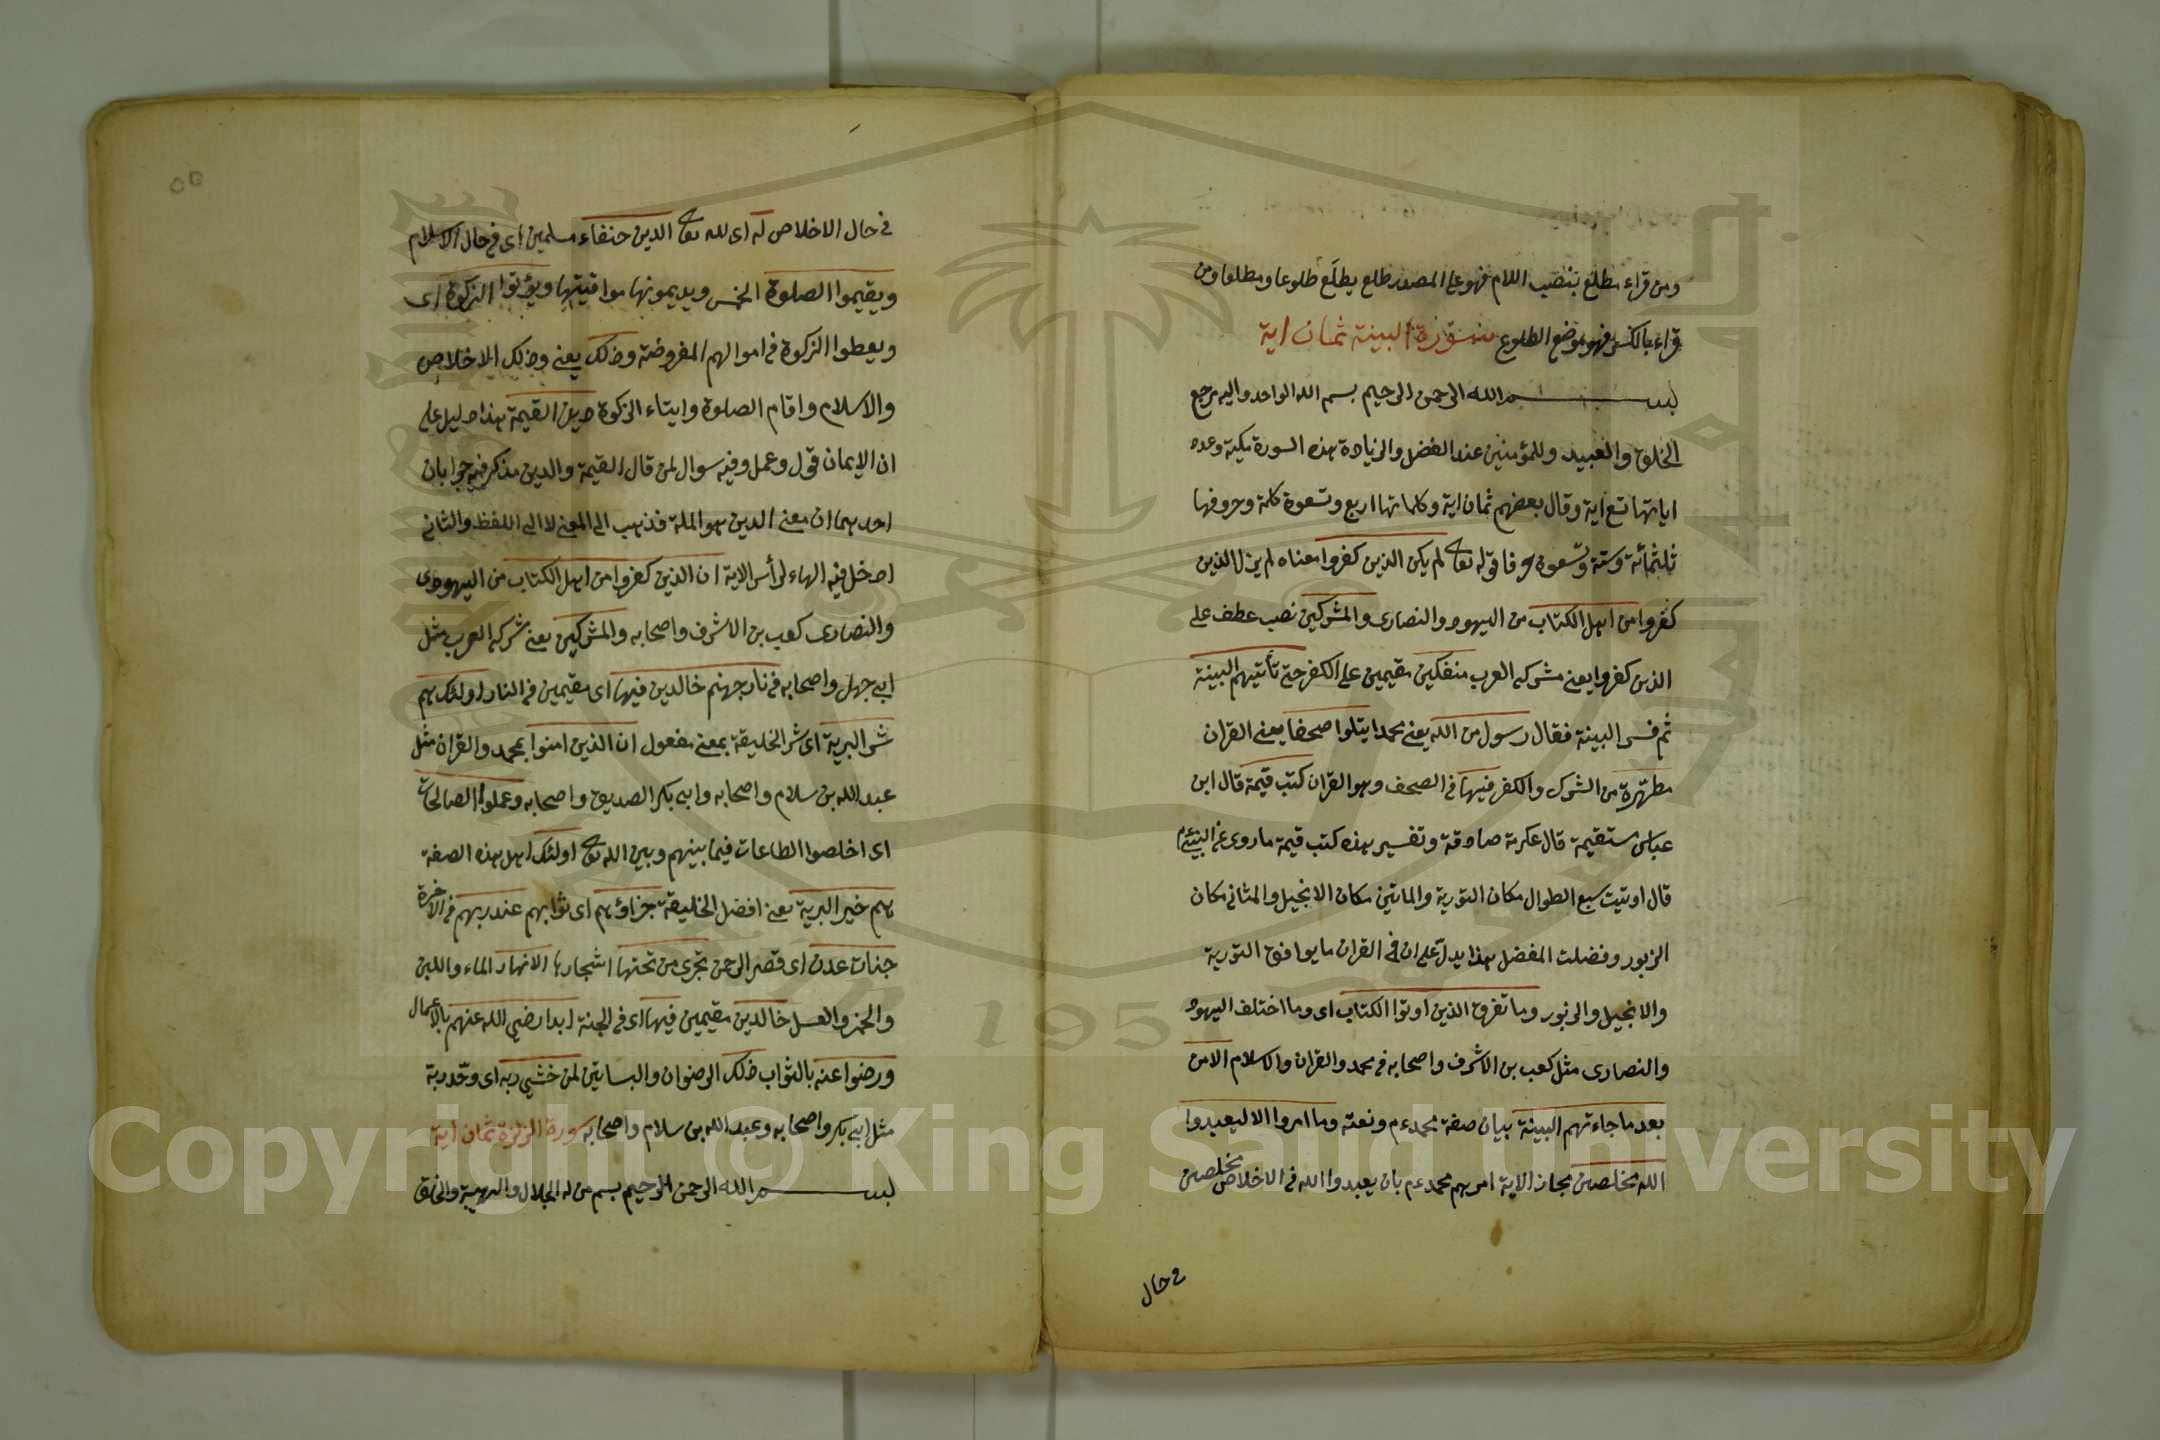 ومن قراء مطلع بنصب اللام فهو على المصدر طلع يطلع طلوعا ومطلعا ومن
قراء بالكسر فهو موضع الطلوع سورة البينة ثمان اية
بسم الله الرحمن الرحيم بسم الله الواحد واليه مرجع
الخلق والعبيد وللمؤمنين عنده الفضل والزيادة هذه السورة مكية وعدد
اياتها تسع اية وقال بعضهم ثمان اية وكلماتها اربع وتسعون كلمة وحروفها
ثلثمائة وستة وتسعون حرفا قوله تعا لم يكن الذين كفروا معناه لم يزل الذين
كفروا من اهل الكتاب من اليهود والنصارى والمشركين نصب عطف على
الذين كفروا يعني مشركي العرب منفكين مقيمين على الكفر حتى تأتيهم البينة
ثم فسر البينة فقال رسول من الله يعني محمدا يتلوا صحفا يعني القران
مطهّرة من الشرك والكفر فيها في الصحف وهو القران كتب قيمة قال ابن
عباس مستقيمة قال عكرمة صادقة وتفسير هذه كتب قيمة ما روى عن النبي ءم
قال اوتيت سبع الطوال مكان التورية والمأتين مكان الانجيل والمثاني مكان
الزبور وفضلت المفصل هذا يدلّ على ان في القران ما يوافق التورية
والانجيل والزبور وما تفرق الذين اوتوا الكتاب اى وما اختلف اليهود
والنصارى مثل كعب بن الاشرف واصحابه في محمد والقران والاسلام الا من
بعد ما جاءتهم البينة بيان صفة محمد ءم ونعته وما امروا الا ليعبدوا
الله مخلصين مجاز الاية امرهم محمد ءم بان يعبدوا الله في الاخلاص مخلصين
في حال
٥٥
في حال الاخلاص له اى لله تعا الدين حنفاء مسلمين اى في حال الاسلام
ويقيموا الصلوة الخمس ويديمونها مواقيتها ويؤتوا الزكوة اى
ويعطوا الزكوة في اموالهم المفروضة وذلك يعني وذلك الاخلاص
والاسلام واقام الصلوة وايتاء الزكوة دين القيمة هذا دليل على
ان الايمان قول وعمل وفيه سوال لمن قال القيمة والدين مذكر فيه جوابان
احدهما ان معنى الدين هو الملة فذهب الى المعنى لا الى اللفظ والثاني
ادخل فيه الهاء لرأس الاية ان الذين كفروا من اهل الكتاب من اليهودى
والنصارى كعب بن الاشرف واصحابه والمشركين يعني مشركي العرب مثل
ابي جهل واصحابه في نار جهنم خالدين فيها اى مقيمين في النار اولئك هم
شر البرية اى شر الخليقة بمعنى مفعول ان الذين امنوا بمحمد والقران مثل
عبد الله بن سلام واصحابه وابي بكر الصديق واصحابه وعملوا الصالحات
اى اخلصوا الطاعات فيما بينهم وبين الله تعا اولئك اهل هذه الصفة
هم خير البرية يعني افضل الخليقة جزاؤهم اى ثوابهم عند ربهم في الاخرة
جنات عدن اى قصر الرحمن تجرى من تحتها اشجارها الانهار الماء واللبن
والخمر والعسل خالدين مقيمين فيها اى في الجنة ابدا رضي الله عنهم بالاعمال
ورضوا عنه بالثواب ذلك الرضوان والبساتين لمن خشي ربه اى وحّد ربه
مثل ابي بكر واصحابه وعبد الله بن سلام واصحابه سورة الزلزلة ثمان اية
بسم الله الرحمن الرحيم بسم من له الجلال والهيبة والخلق
Copyright © King Saud University
1957